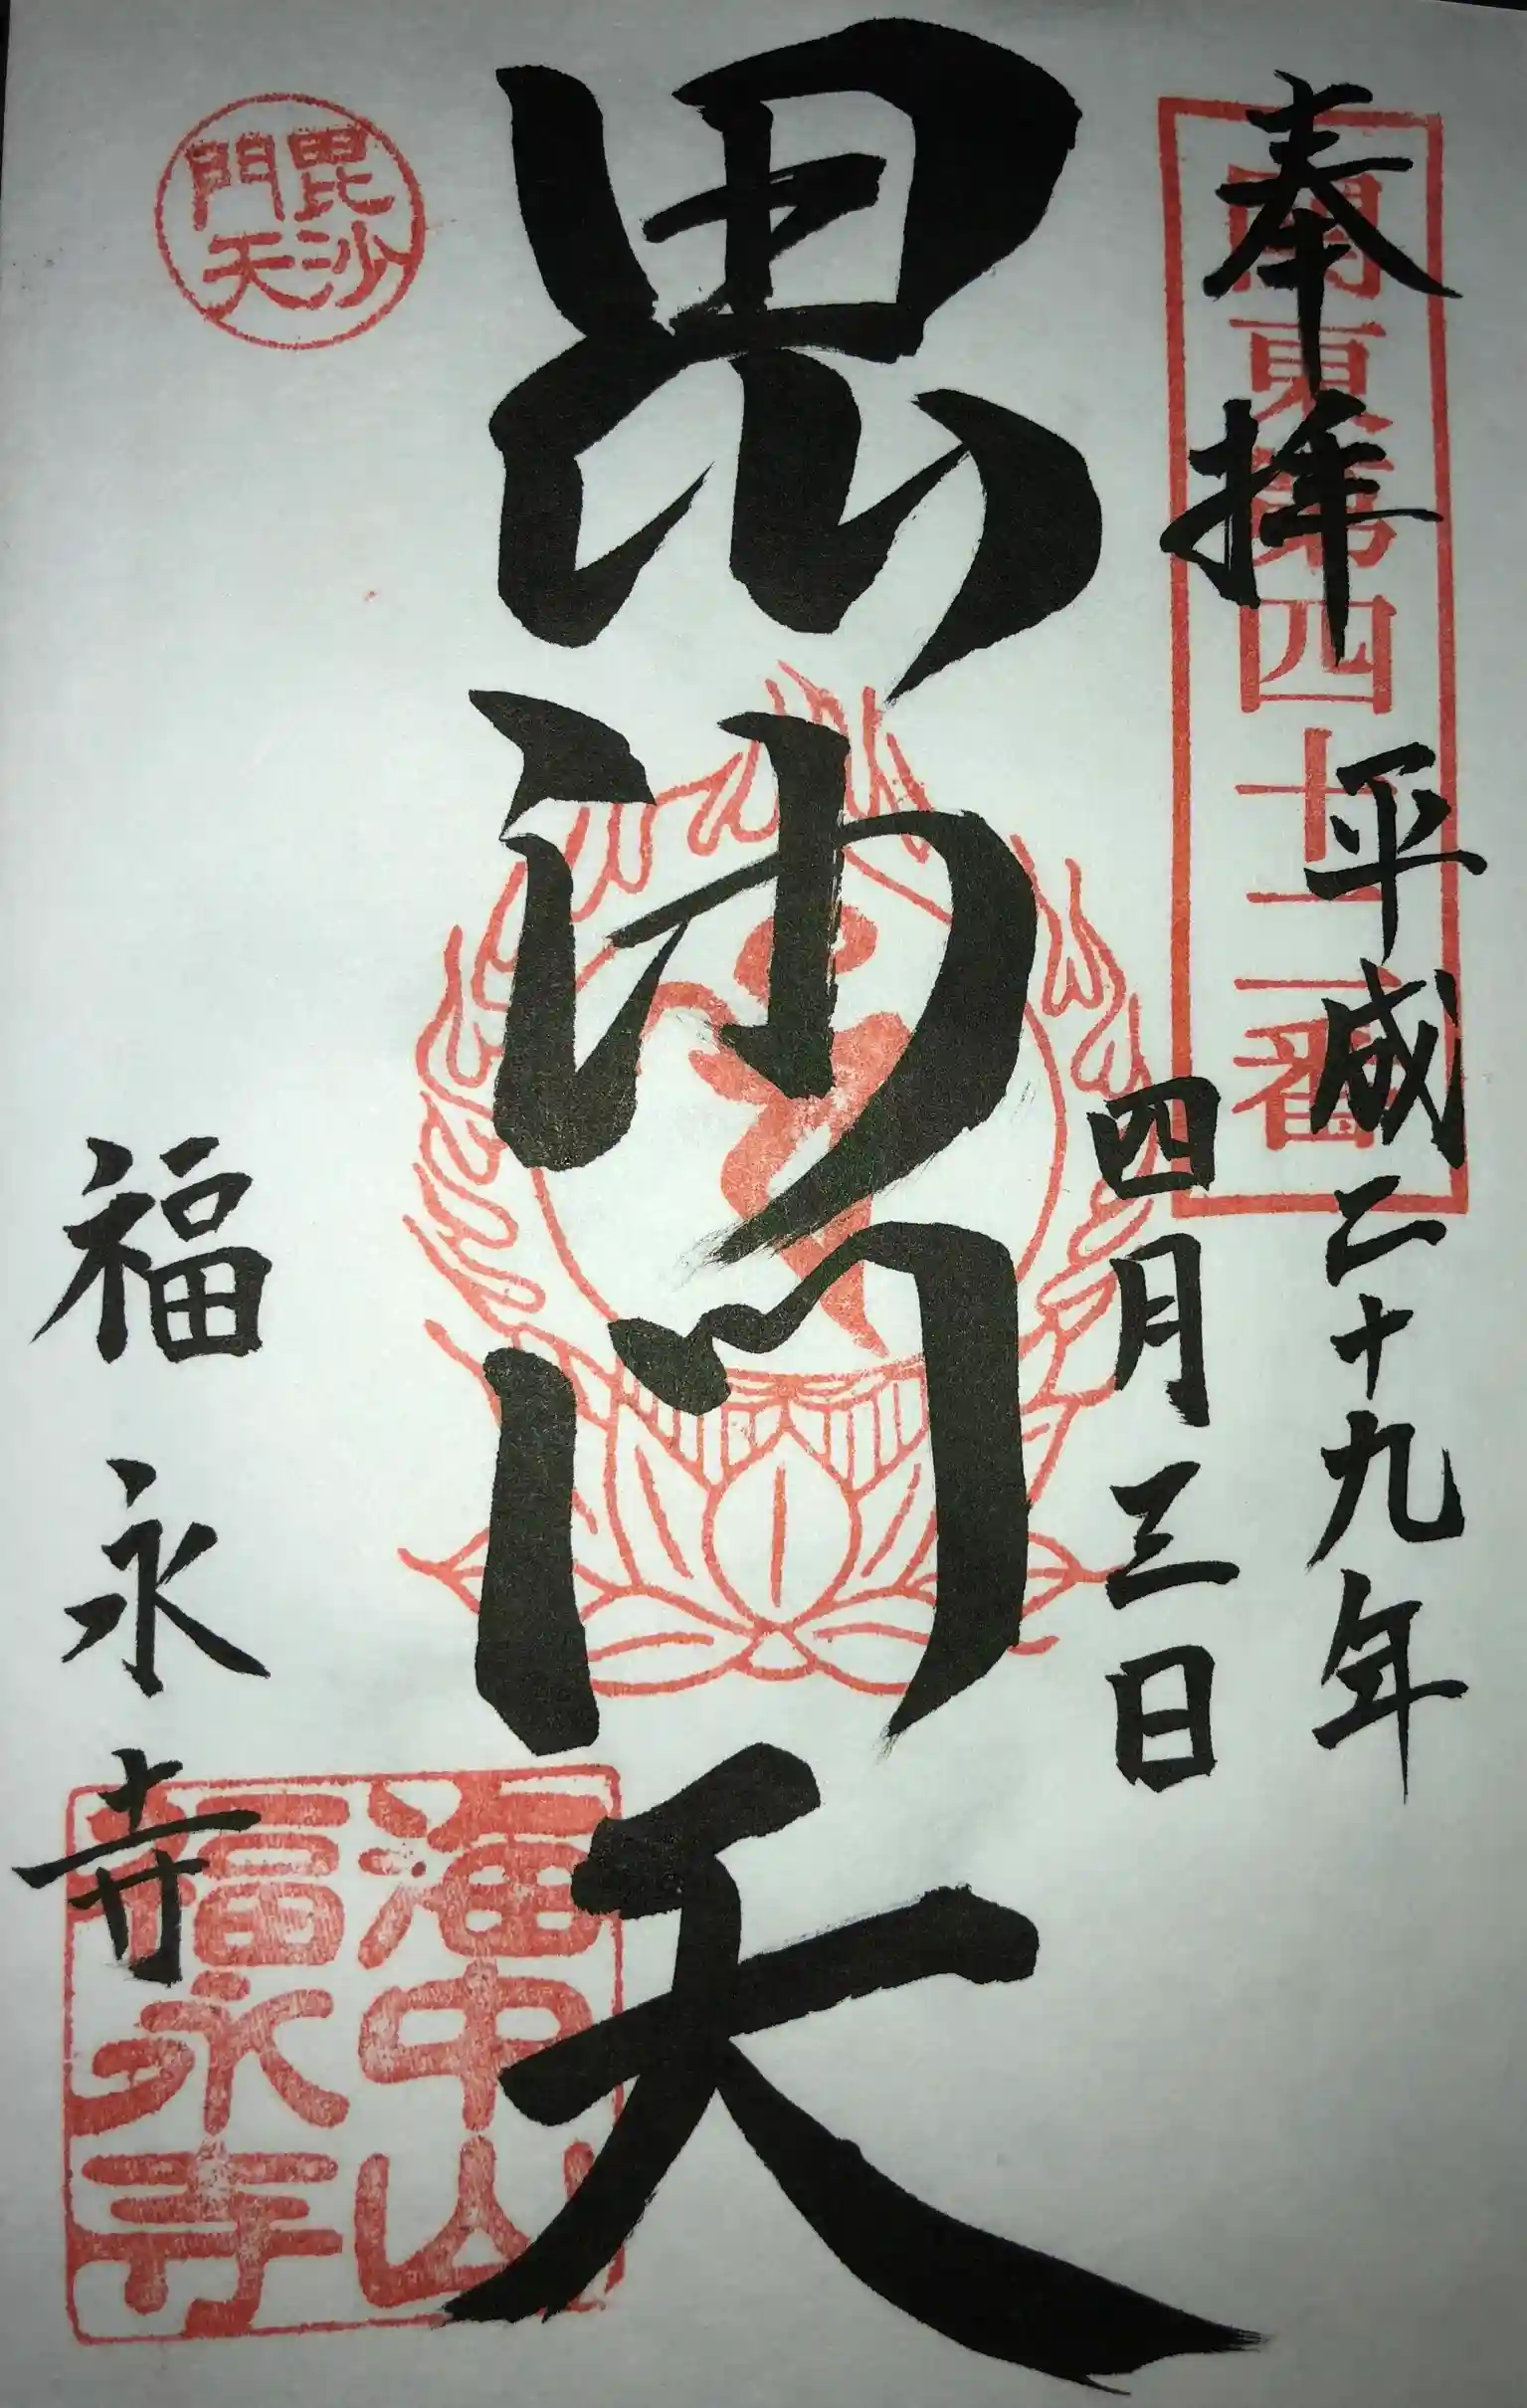 奉拝
関東第四十二番
平成二十九年
四月三日
毘沙門天
毘沙
門天
福永寺
海中山
福永寺